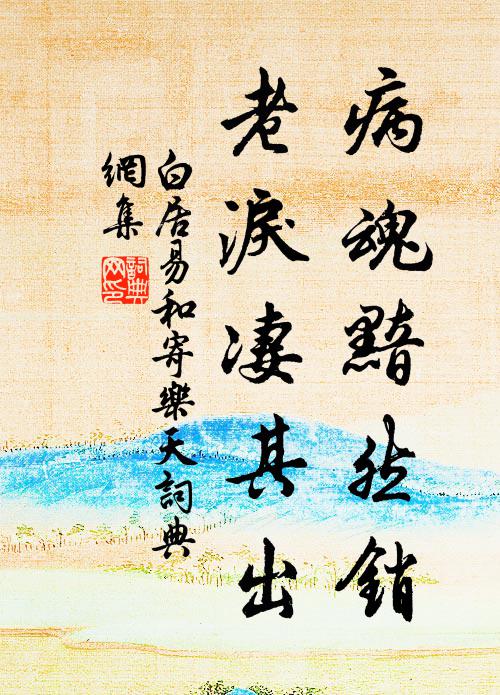 病魂黯然銷
老淚淒其出
白居易和寄樂天詞典
網集
詞典網印